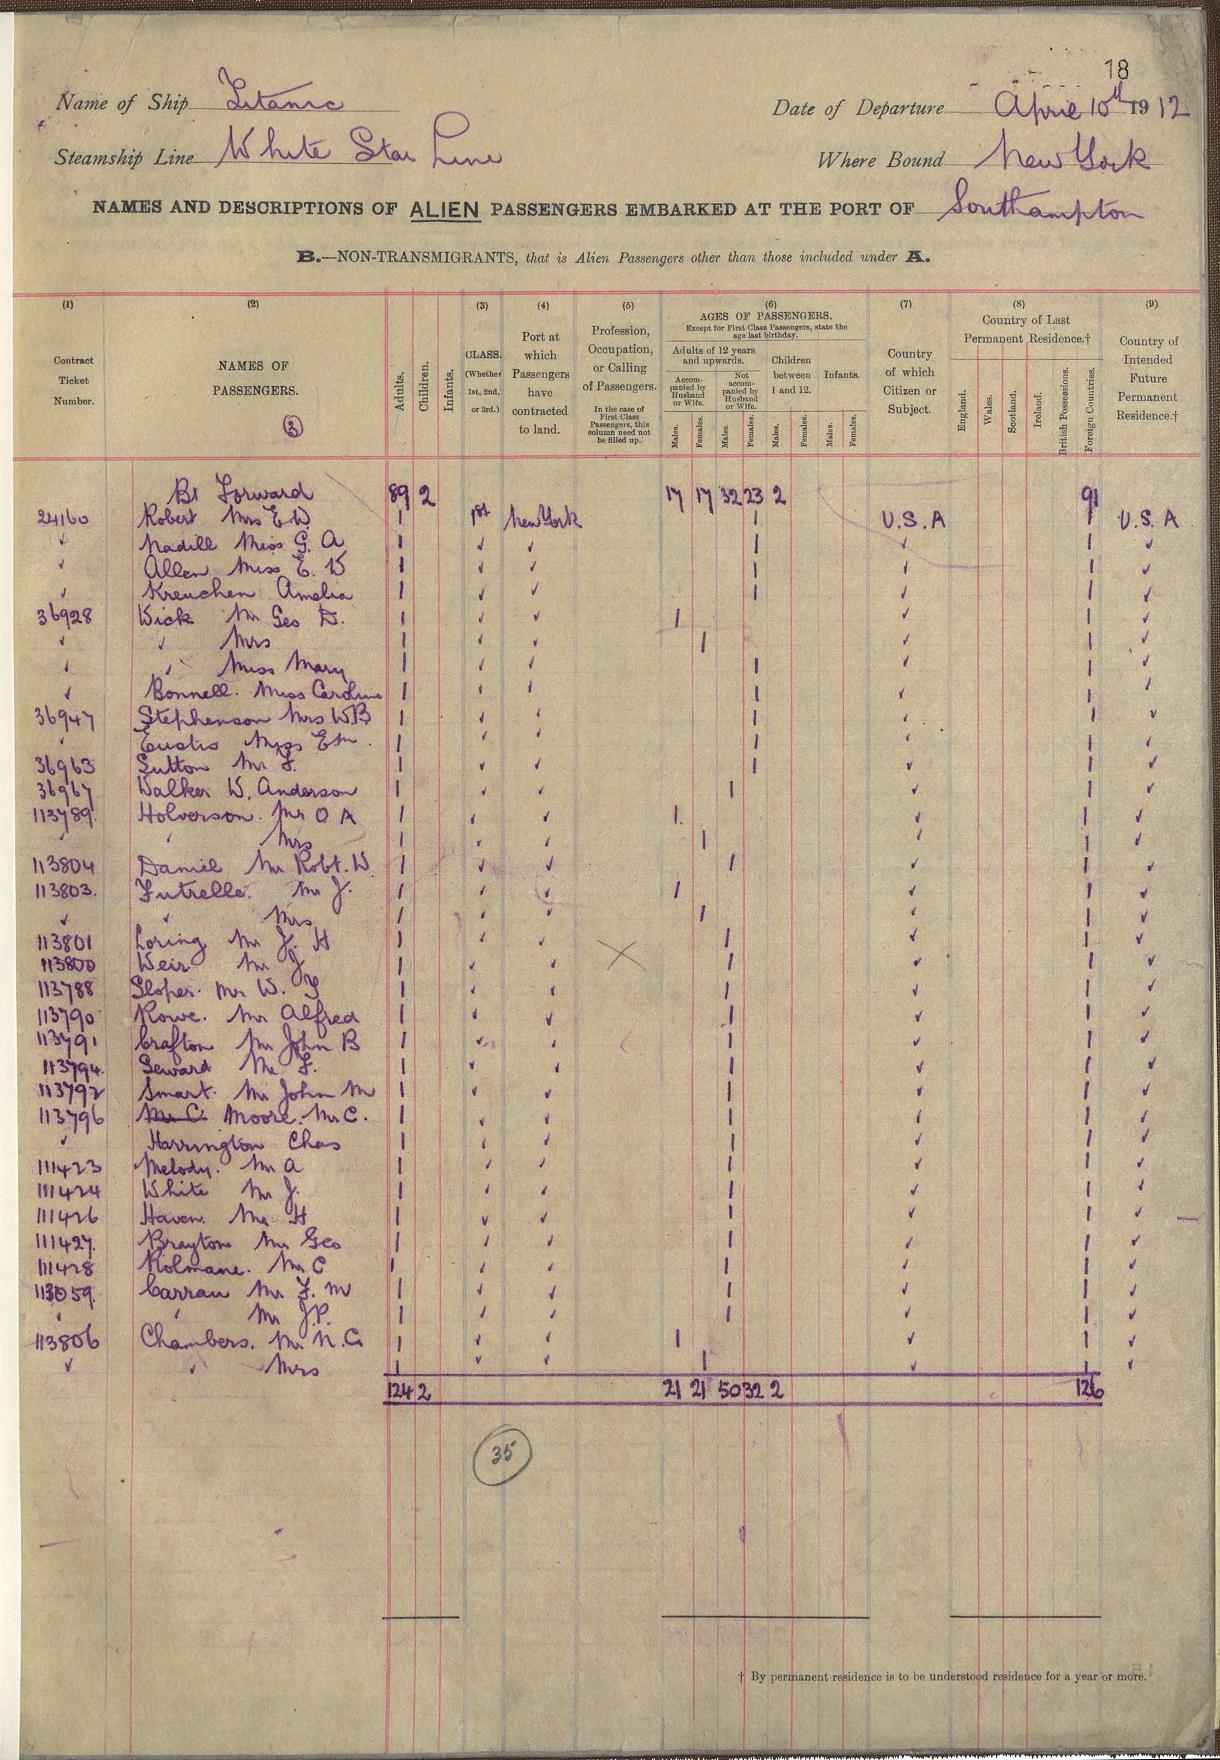 18
Name of Ship Titanic Date of Departure April 10th 1912
Steamship Line White Star Line Where Bound New York
NAMES AND DESCRIPTIONS OF ALIEN PASSENGERS EMBARKED AT THE PORT OF Southampton
B.—NON-TRANSMIGRANTS, that is Alien Passengers other than those included under A.
(1) (2) (3) (4) (5) (6) (7) (8) (9)
Contract Ticket Number.
NAMES OF PASSENGERS.
3
Adults. Children. Infants.
CLASS. (Whether 1st, 2nd, or 3rd.)
Port at which Passengers have contracted to land.
Profession, Occupation, or Calling of Passengers.
In the case of First Class Passengers, this column need not be filled up.
AGES OF PASSENGERS.
Except for First Class Passengers, state the age last birthday.
Adults of 12 years and upwards.
Accompanied by Husband or Wife.
Not accompanied by Husband or Wife.
Children between 1 and 12.
Infants.
Males. Females. Males. Females. Males. Females. Males. Females.
Country of which Citizen or Subject.
Country of Last Permanent Residence.†
England. Wales. Scotland. Ireland. British Possessions. Foreign Countries.
Country of Intended Future Permanent Residence.†
Bt Forward 89 2 17 17 32 23 2 91
24160 Robert Mrs E W 1 1st New York 1 U.S.A 1 U.S.A
✓ Madill Miss G. A 1 ✓ ✓ 1 ✓ 1 ✓
✓ Allen Miss E. W 1 ✓ ✓ 1 ✓ 1 ✓
✓ Kreuchen Amelia 1 ✓ ✓ 1 ✓ 1 ✓
36928 Wick Mr Geo D. 1 ✓ ✓ 1 ✓ 1 ✓
✓ ✓ Mrs 1 ✓ ✓ 1 ✓ 1 ✓
✓ ✓ Miss Mary 1 ✓ ✓ 1 ✓ 1 ✓
✓ Bonnell. Miss Caroline 1 ✓ ✓ 1 ✓ 1 ✓
36947 Stephenson Mrs W B 1 ✓ ✓ 1 ✓ 1 ✓
✓ Eustis Miss E m. 1 ✓ ✓ 1 ✓ 1 ✓
36963 Sutton Mr F. 1 ✓ ✓ 1 ✓ 1 ✓
36967 Walker W. Anderson 1 ✓ ✓ 1 ✓ 1 ✓
113789. Holverson. Mr O A 1 ✓ ✓ 1. ✓ 1 ✓
✓ ✓ Mrs 1 ✓ ✓ 1 ✓ 1 ✓
113804 Daniel Mr Robt. W. 1 ✓ ✓ 1 ✓ 1 ✓
113803. Futrelle. Mr J. 1 ✓ ✓ 1 ✓ 1 ✓
✓ ✓ Mrs 1 ✓ ✓ 1 ✓ 1 ✓
113801 Loring Mr J. H 1 ✓ ✓ 1 ✓ 1 ✓
113800 Weir. Mr J 1 ✓ ✓ 1 ✓ 1 ✓
113788 Sloper. Mr W. T 1 ✓ ✓ 1 ✓ 1 ✓
113790 Rowe. Mr Alfred 1 ✓ ✓ 1 ✓ 1 ✓
113791 Crafton Mr John B 1 ✓ ✓ 1 ✓ 1 ✓
113794. Seward Mr F. 1 ✓ ✓ 1 ✓ 1 ✓
113792 Smart. Mr John M 1 ✓ ✓ 1 ✓ 1 ✓
113796 Mr C. Moore. Mr C. 1 ✓ ✓ 1 ✓ 1 ✓
✓ Harrington Chas 1 ✓ ✓ 1 ✓ 1 ✓
111423 Melody. Mr A 1 ✓ ✓ 1 ✓ 1 ✓
111424 White Mr J. 1 ✓ ✓ 1 ✓ 1 ✓
111426 Haven. Mr H 1 ✓ ✓ 1 ✓ 1 ✓
111427. Brayton Mr Geo 1 ✓ ✓ 1 ✓ 1 ✓
111428 Rolmane. Mr C 1 ✓ ✓ 1 ✓ 1 ✓
113059. Carrau Mr F. M 1 ✓ ✓ 1 ✓ 1 ✓
✓ ✓ Mr J.P. 1 ✓ ✓ 1 ✓ 1 ✓
113806 Chambers. Mr N.C. 1 ✓ ✓ 1 ✓ 1 ✓
✓ ✓ Mrs 1 ✓ ✓ 1 ✓ 1 ✓
124 2 21 21 50 32 2 126
35
† By permanent residence is to be understood residence for a year or more.